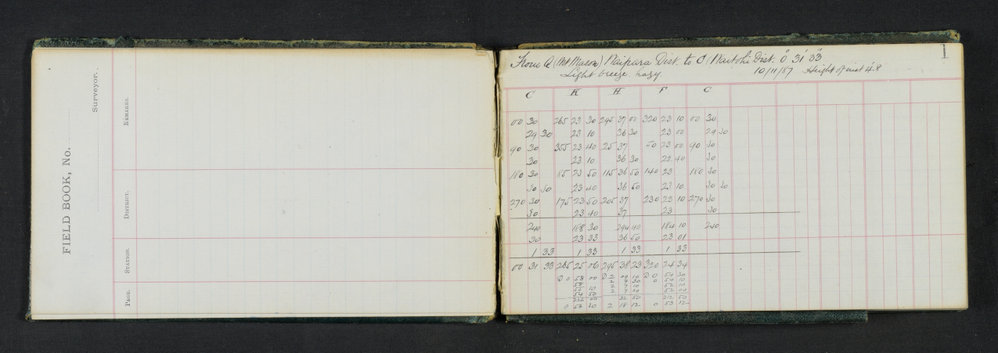 FIELD BOOK, No.
Surveyor.
REMARKS.
DISTRICT.
STATION.
PAGE.
1
From Q (Mt Mason) Waipara Dist. to C Waitohi Dist. 0° 31' 33"
Light breeze hazy 10/11/87 Height of inst 4.8
C K H F C
00 30 265 23 30 295 37 00 320 23 10 00 30
29 30 23 10 36 30 23 00 29 30
90 30 355 23 40 25 37 50 23 00 90 30
30 23 10 36 30 22 40 30
180 30 85 23 50 115 36 50 140 23 180 30
30 30 23 40 36 50 23 10 30 30
270 30 175 23 50 205 37 230 23 10 270 30
30 23 40 37 23 30
240 188 30 294 40 184 10 240
30 23 33 36 50 23 01
1 33 1 33 1 33 1 33
00 31 33 265 25 06 295 38 23 320 24 34